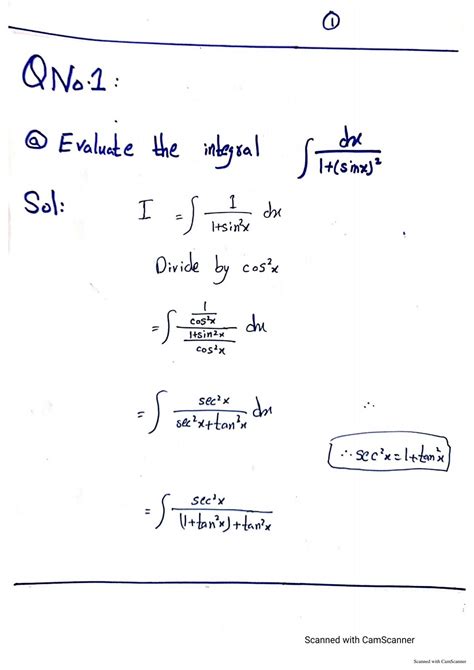 ①
QNo.1:
ⓐ Evaluate the integral ∫ dx / 1+(sinx)²
Sol: I = ∫ 1 / 1+sin²x dx
Divide by cos²x
= ∫ (1 / cos²x) / (1+sin²x / cos²x) dx
= ∫ sec²x / sec²x+tan²x dx
∴
∵ sec²x = 1+tan²x
= ∫ sec²x / (1+tan²x)+tan²x
Scanned with CamScanner
Scanned with CamScanner